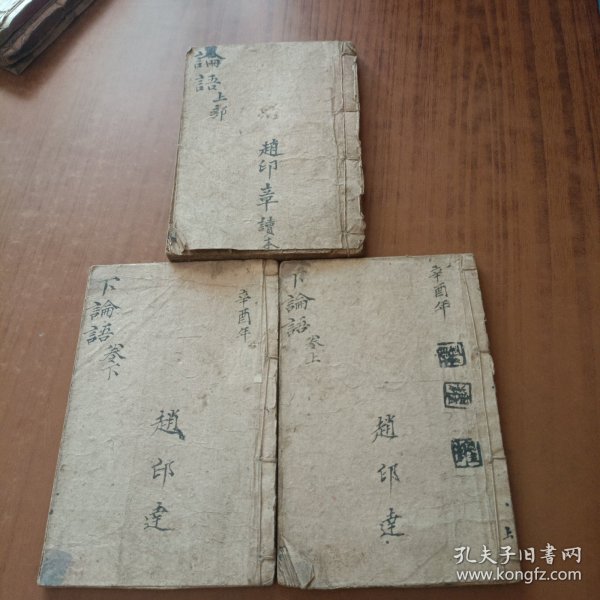 論語
上部
趙印章讀本
辛酉年
下論語
卷下
趙印達
辛酉年
下論語
卷上
趙印達
上
孔夫子旧書网
www.kongfz.com